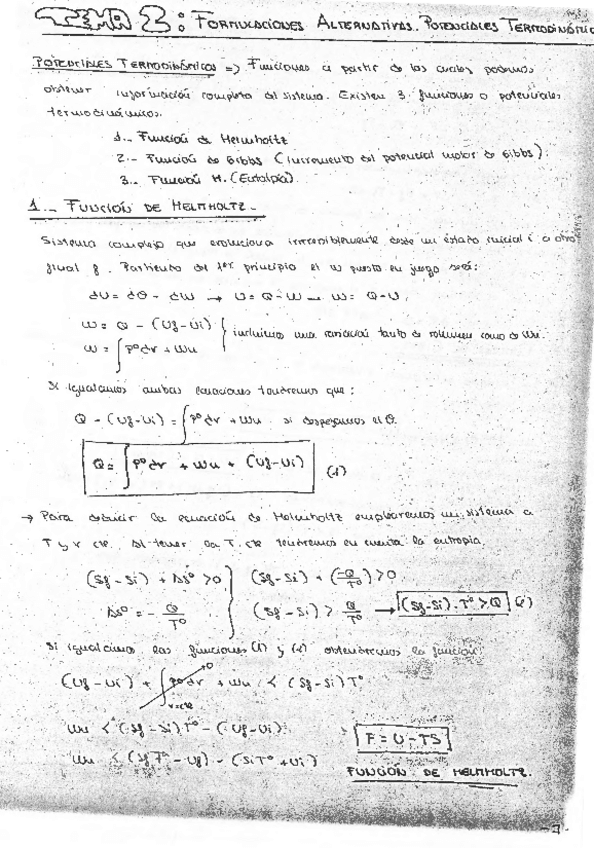 TEMA 2: FORMULACIONES ALTERNATIVAS. POTENCIALES TERMODINÁMIC
POTENCIALES TERMODINÁMICOS => Funciones a partir de las cuales podemos
obtener información completa del sistema. Existen 3 funciones o potenciales
termodinámicos.
1.- Función de Helmholtz
2.- Función de Gibbs (incremento del potencial motor de Gibbs).
3.- Función H. (Entalpía).
1.- FUNCIÓN DE HELMHOLTZ.-
Sistema complejo que evoluciona irreversiblemente desde un estado inicial i a otro
final f. Partiendo del 1er principio el W puesto en juego será:
dU = dQ - dW → U = Q - W → W = Q - U.
W = Q - (Uf - Ui) } incluimos una variación tanto de volumen como de Wu.
W = ∫P°dv + Wu
Si igualamos ambas ecuaciones tendremos que:
Q - (Uf-Ui) = ∫P°dv + Wu. si despejamos el Q.
Q = ∫P°dv + Wu + (Uf-Ui) (1)
→ Para deducir la ecuación de Helmholtz emplearemos un sistema a
T y v cte. Al tener la T. cte tendremos en cuenta la entropía.
(Sf - Si) + ΔS° > 0 } (Sf-Si) + (-Q/T°) > 0
ΔS° = - Q/T° (Sf - Si) > Q/T° → (Sf-Si).T° > Q (2)
Si igualamos las funciones (1) y (2) obtendremos la función:
(Uf - Ui) + ∫P°dv + Wu < (Sf-Si)T°
0
v=cte
Wu < (Sf-Si)T° - (Uf-Ui)
F = U - TS
Wu < (Sf T° - Uf) - (SiT° + Ui)
FUNCIÓN DE HELMHOLTZ.